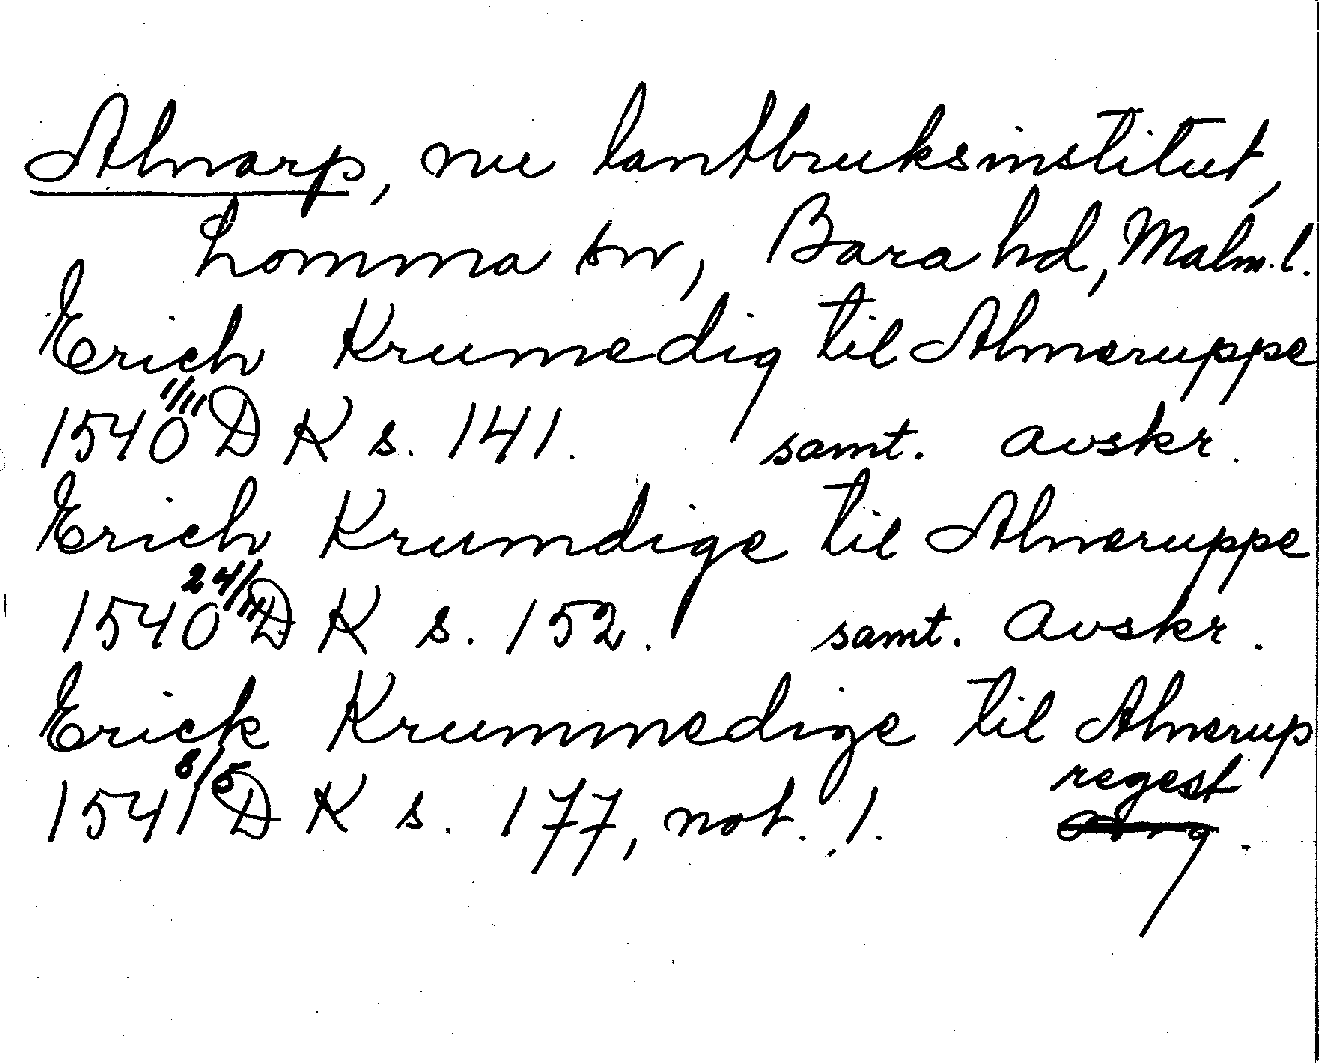 Alnarp, nu lantbruksinstitut,
Lomma sn, Bara hd, Malm. l.
Erich Krumedig til Almeruppe
1540 1/11 DK s. 141. samt. avskr.
Erich Krumdige til Alneruppe
1540 24/11 DK s. 152. samt. avskr.
Erick Krummedige til Alnerup
1541 8/5 DK s. 177, not. 1. regest